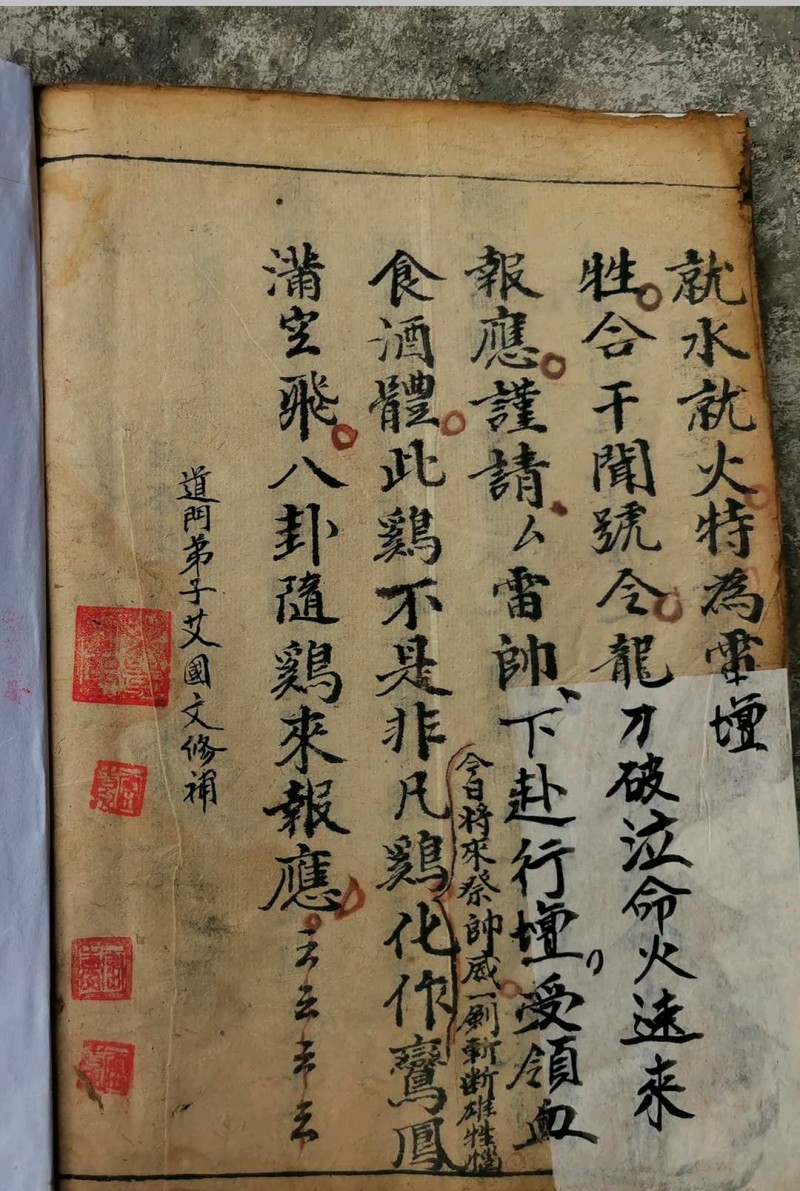 就水就火特為雷壇
牲合干聞號令龍刀破泣命火速來
報應謹請厶雷帥下赴行壇受領血
今日將來祭帥威一劍斬斷雄牲
食酒體此鷄不是非凡鷄化作鸞鳳
滿空飛八卦隨鷄來報應云云云云
道門弟子艾國文修補